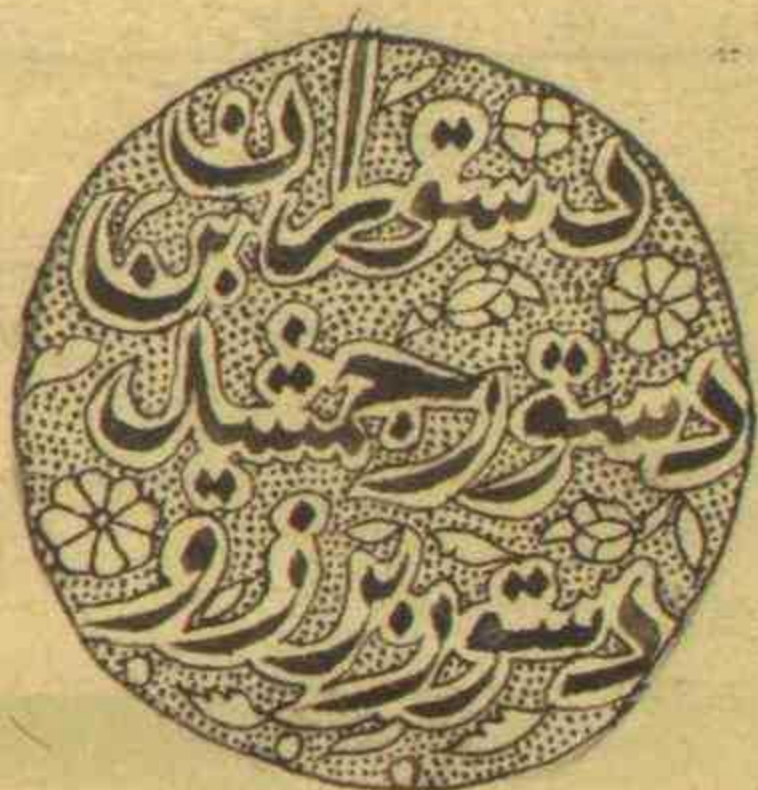 دستوران بن
دستور جمشید
دستور برزو